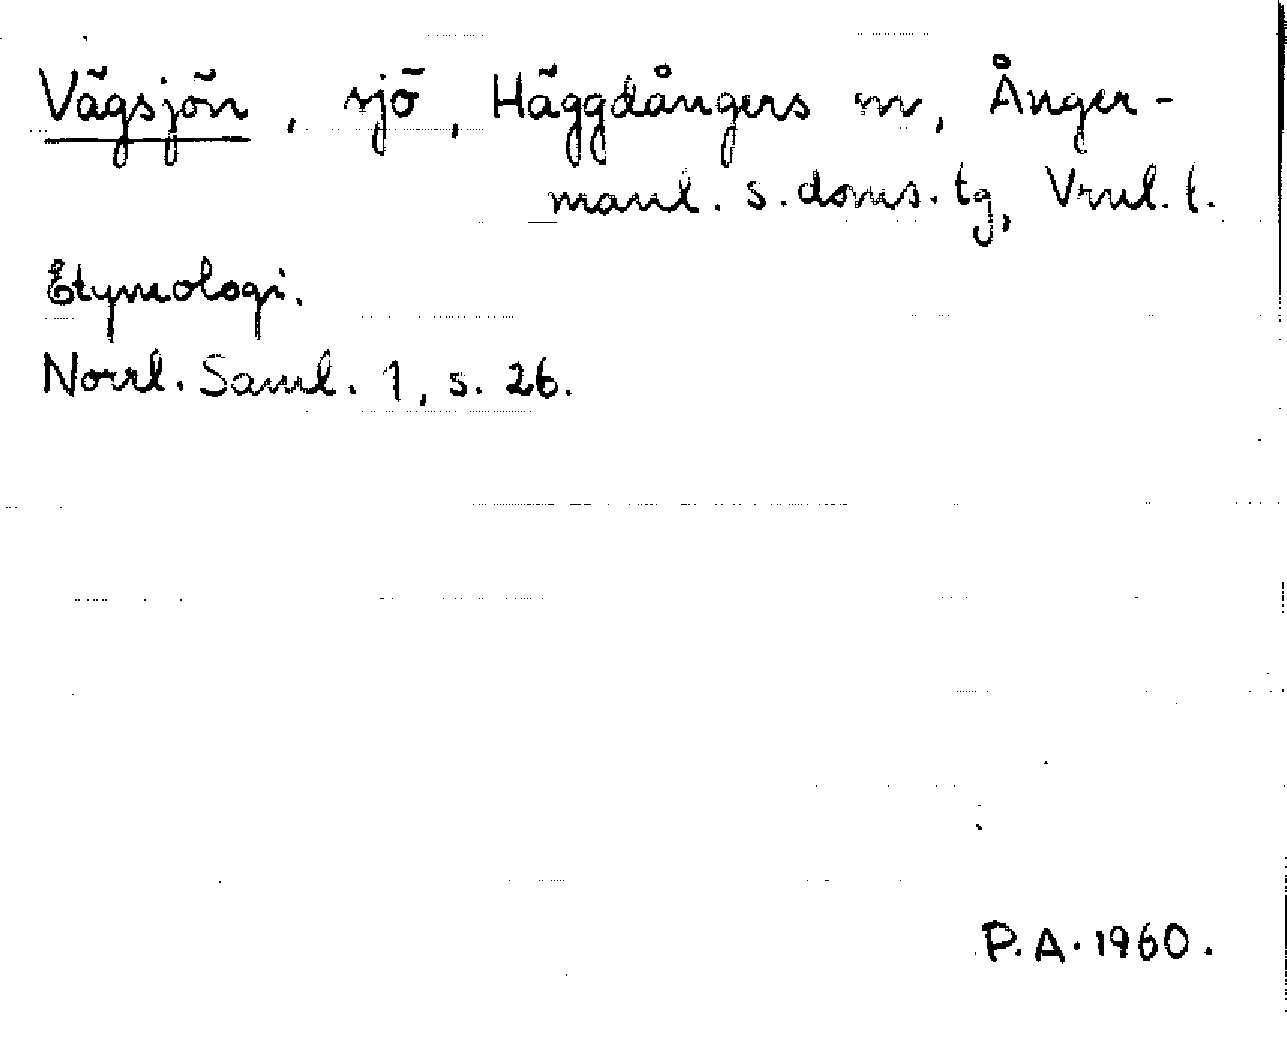 Vägsjön, sjö, Häggdångers sn, Ånger-
manl. s. doms. tg, Vrnl. l.
Etymologi.
Norrl. Saml. 1, s. 26.
P.A. 1960.